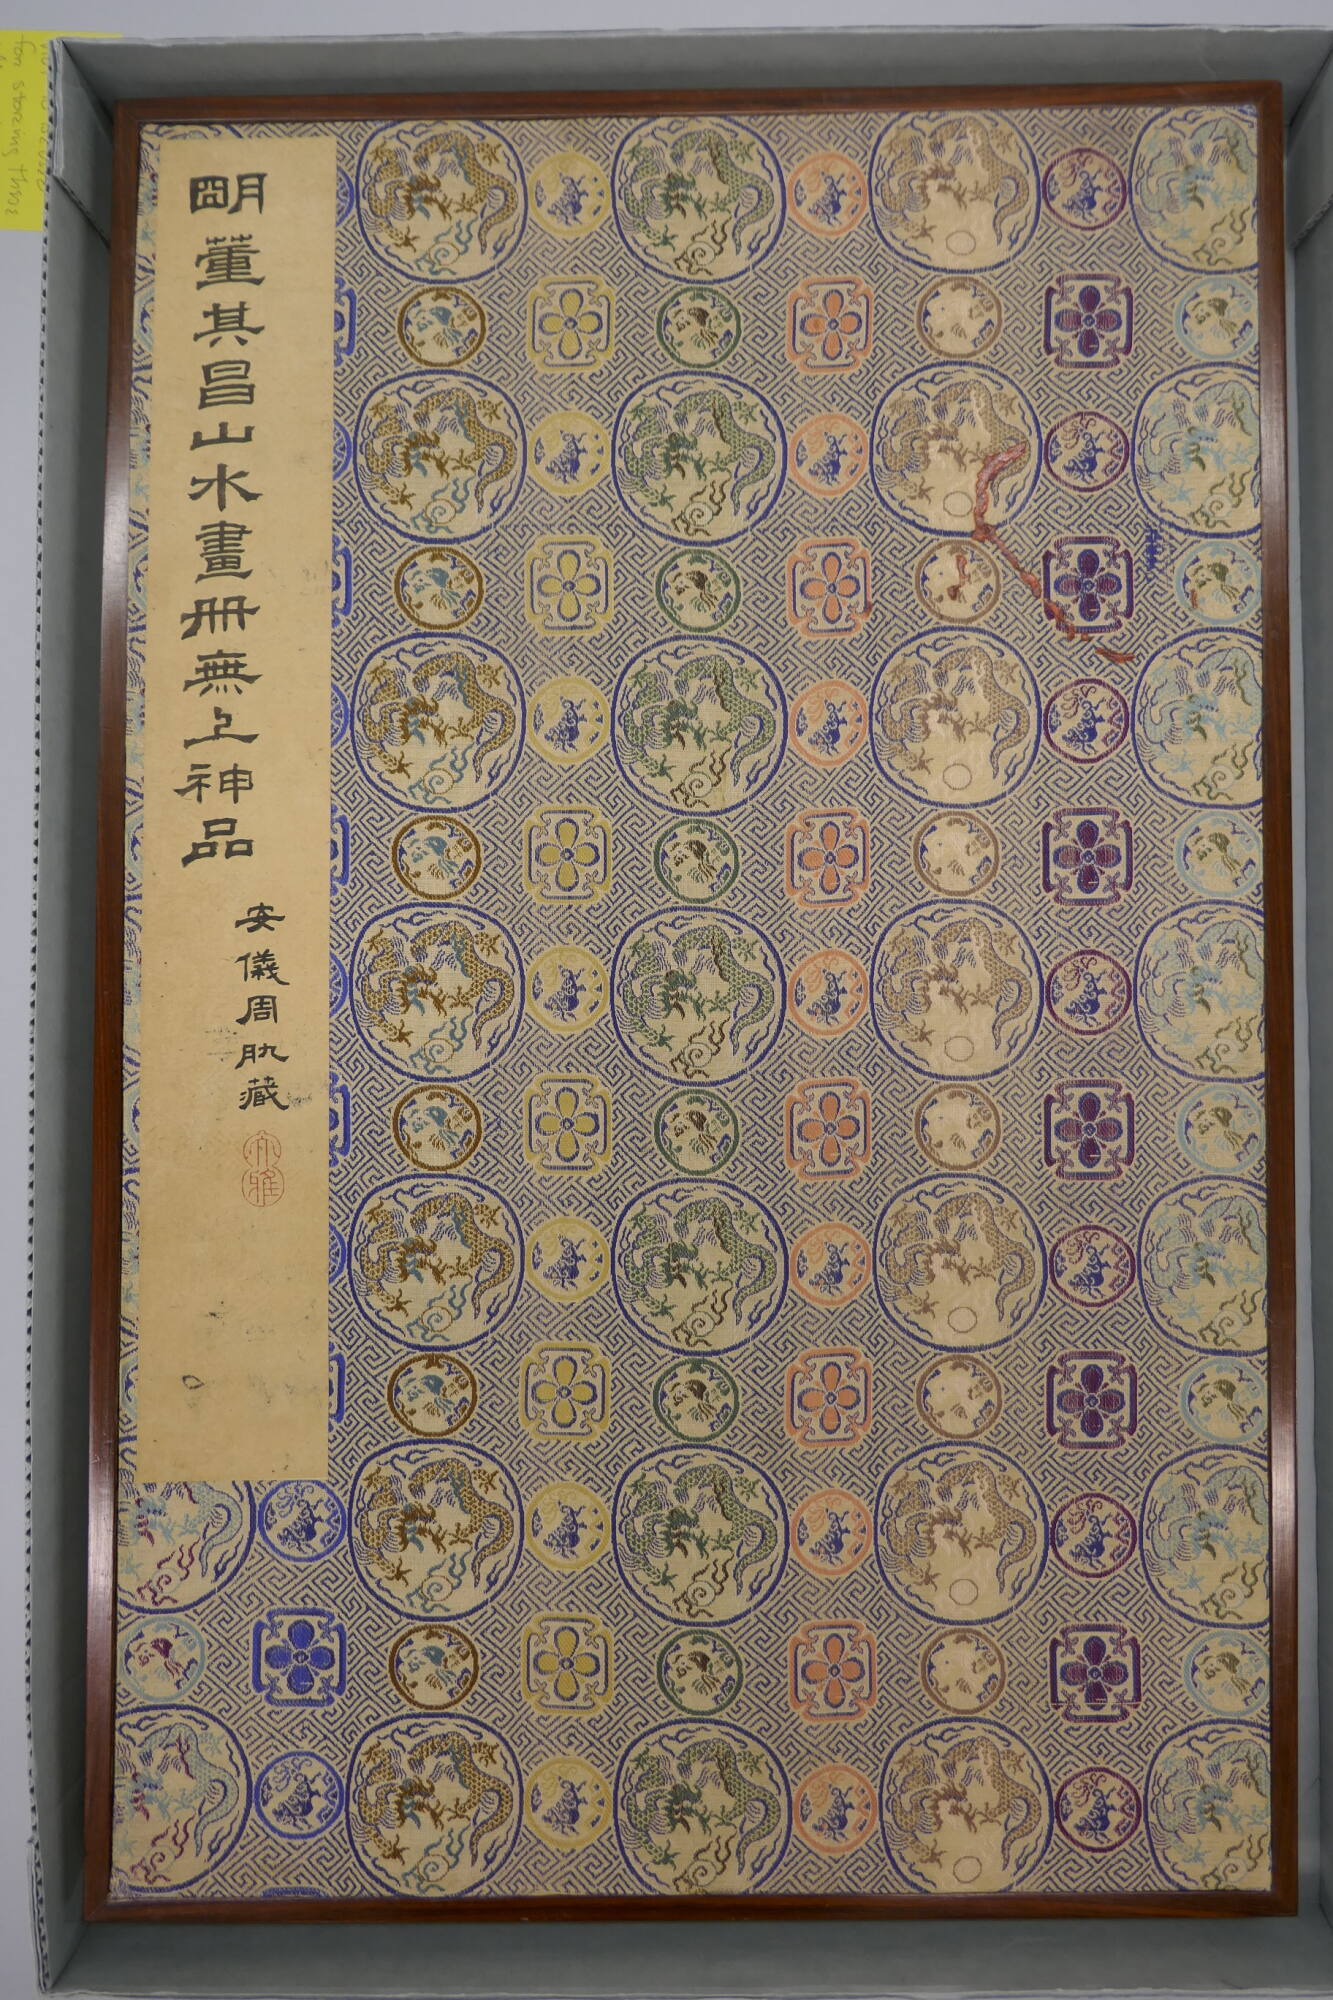 明董其昌山水畫冊無上神品
安儀周舊藏
for storing this